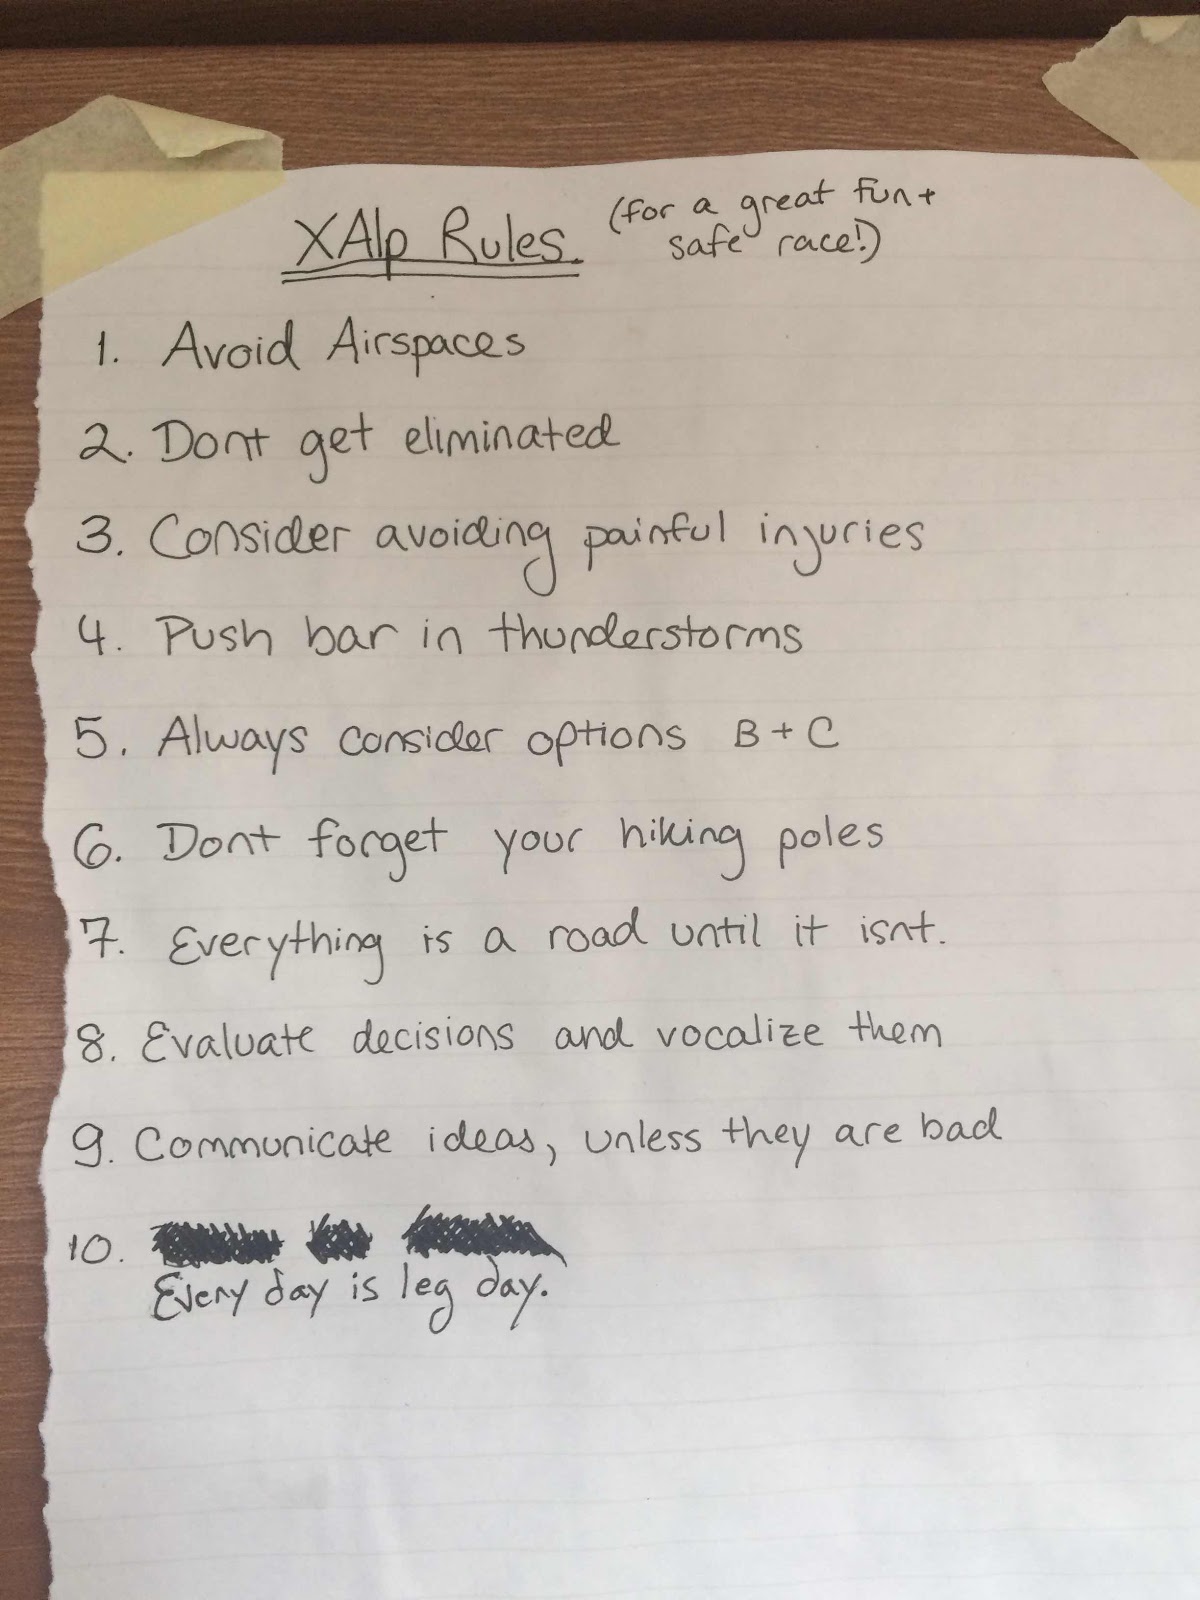 XAlp Rules. (for a great fun +
safe race!)
1. Avoid Airspaces
2. Dont get eliminated
3. Consider avoiding painful injuries
4. Push bar in thunderstorms
5. Always consider options B + C
6. Dont forget your hiking poles
7. Everything is a road until it isnt.
8. Evaluate decisions and vocalize them
9. Communicate ideas, unless they are bad
10.
Every day is leg day.